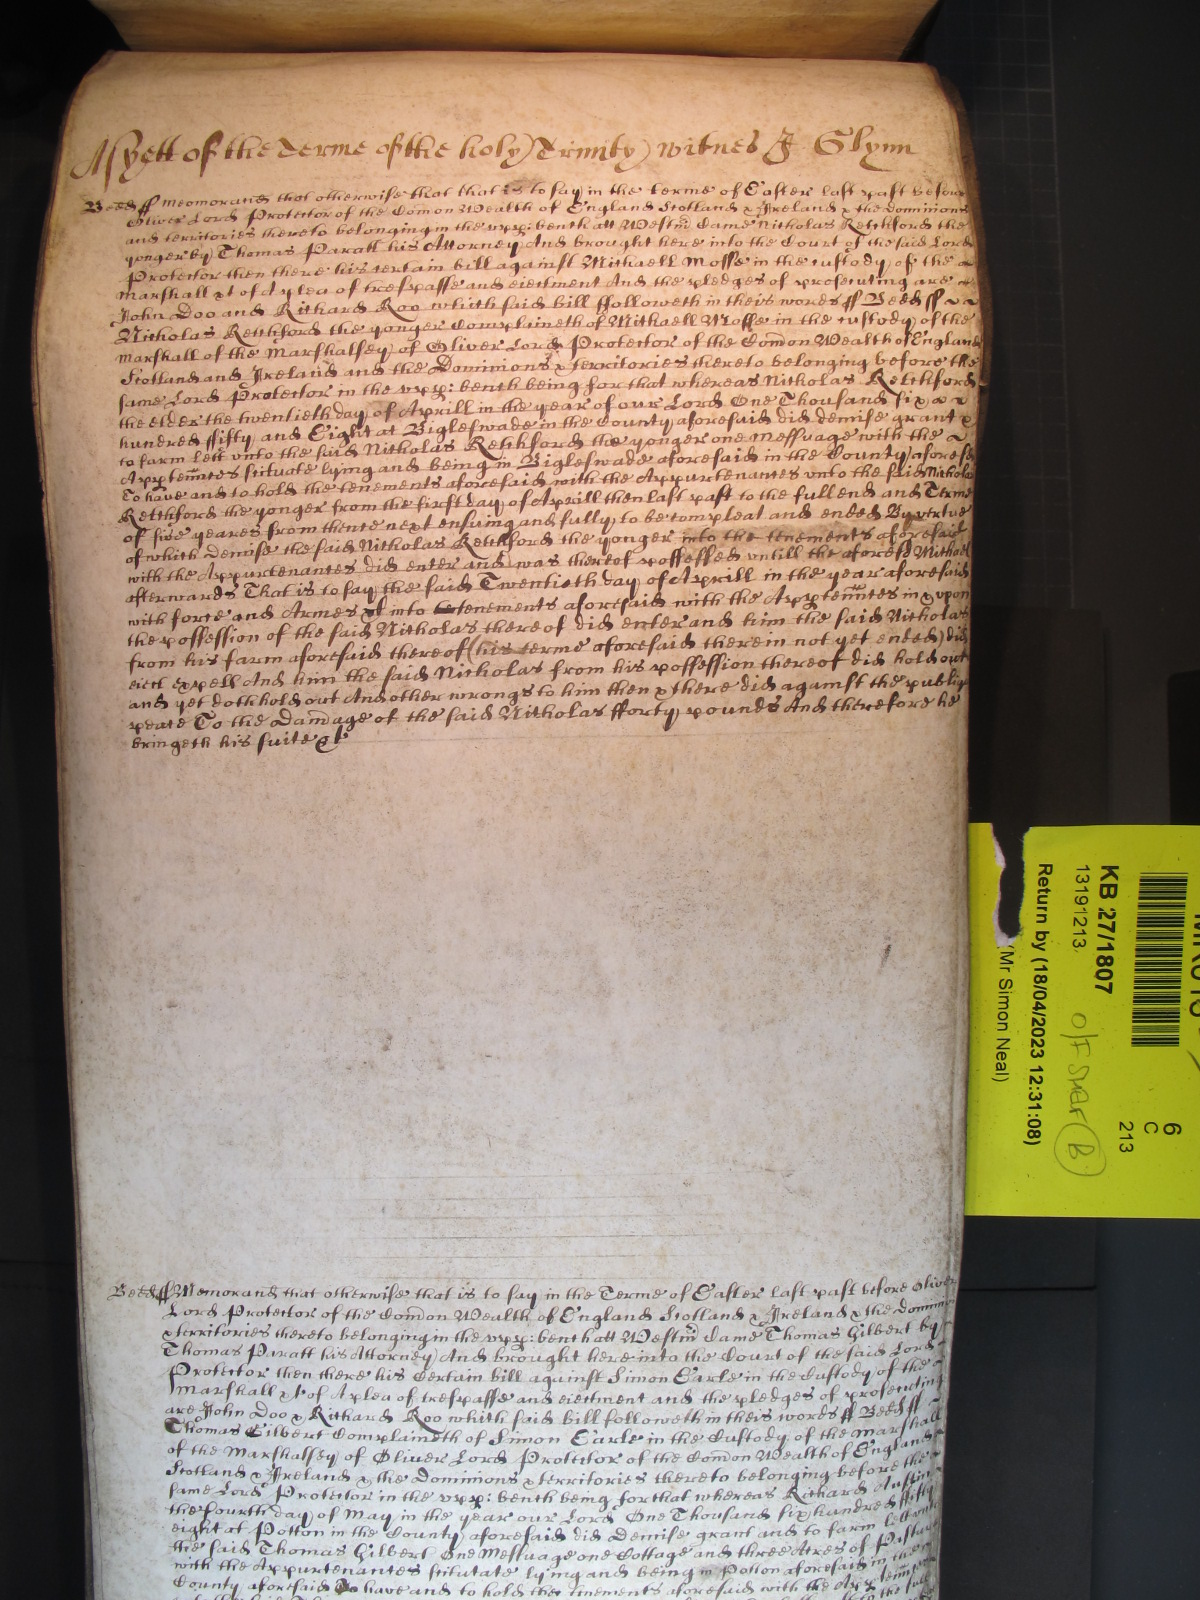 As yett of the Terme of the holy Trinity witnes J Glynn
Beds ss Memorand that otherwise that that is to say in the terme of Easter last past before
Oliver Lord Protector of the Comon Wealth of England Scotland & Ireland & the dominions
and territories thereto belonging in the upp: bench att Westm Came Nicholas Retchford the
yonger by Thomas Paratt his Attorney And brought here into the Court of the said Lord
Protector then there his certain bill against Michaell Mosse in the custody of the
marshall &c of A plea of trespasse and eiectment And the pledges of prosecuting are
John Doo and Richard Roo which said bill ffolloweth in theis words ss Beds ss
Nicholas Retchford the yonger Complaineth of Michaell Mosse in the custody of the
marshall of the Marshalsey of Oliver Lord Protector of the Comon Wealth of England
Scotland and Ireland and the Dominions & territories thereto belonging before the
same Lord Protector in the upp: bench being for that whereas Nicholas Retchford
the elder the twentieth day of Aprill in the year of our Lord One Thousand six
hundred ffifty and Eight at Bigleswade in the County aforesaid did demise grant &
to farm lett unto the said Nicholas Retchford the yonger one messuage with the
Apptennts scituate lying and being in Bigleswade aforesaid in the County aforesd
To have and to hold the tenements aforesaid with the Appurtenances unto the said Nichola
Retchford the yonger from the first day of Aprill then last past to the full end and Terme
of five yeares from thence next ensuing and fully to be compleat and ended By vertue
of which demise the said Nicholas Retchford the yonger into the tenements aforesaid
with the Appurtenances did enter and was thereof possessed untill the aforesd Michael
afterwards That is to say the said Twentieth day of Aprill in the year aforesaid
with force and Armes &c into tenements aforesaid with the Apptennts in & upon
the possession of the said Nicholas thereof did enter and him the said Nicholas
from his farm aforesaid thereof (his terme aforesaid therein not yet ended) did
eiect expell And him the said Nicholas from his possession thereof did hold out
and yet doth hold out And other wrongs to him then & there did against the publiq
peace To the Damage of the said Nicholas fforty pounds And therefore he
bringeth his suite &c
Beds ss Memorand that otherwise that is to say in the Terme of Easter last past before Oliver
Lord Protector of the Comon Wealth of England Scotland & Ireland & the domin
& territories thereto belonging in the upp: bench att Westm Came Thomas Gilbert by
Thomas Paratt his Attorney And brought here into the Court of the said Lord
Protector then there his Certain bill against Simon Earle in the Custody of the
marshall &c of A plea of trespasse and eiectment and the pledges of prosecuting
are John Doo & Richard Roo which said bill followeth in theis words ss Beds ss
Thomas Gilbert Complaineth of Simon Earle in the Custody of the marshall
of the Marshallsey of Oliver Lord Protector of the Comon Wealth of England
Scotland & Ireland & the Dominions & territories thereto belonging before the
same Lord Protector in the upp: bench being for that whereas Richard Austin
the fourth day of May in the year our Lord One Thousand six hundred ffifty
eight at Potton in the County aforesaid did Demise grant and to farm lett unto
the said Thomas Gilbert One Messuage one Cottage and three Acres of Pasture
with the Appurtenances scituate lying and being in Potton aforesaid in the
County aforesaid To have and to hold the tenements aforesaid with the
KB 27/1807
13191213
Return by (18/04/2023 12:31:08)
(Mr Simon Neal)
6
C
213
B